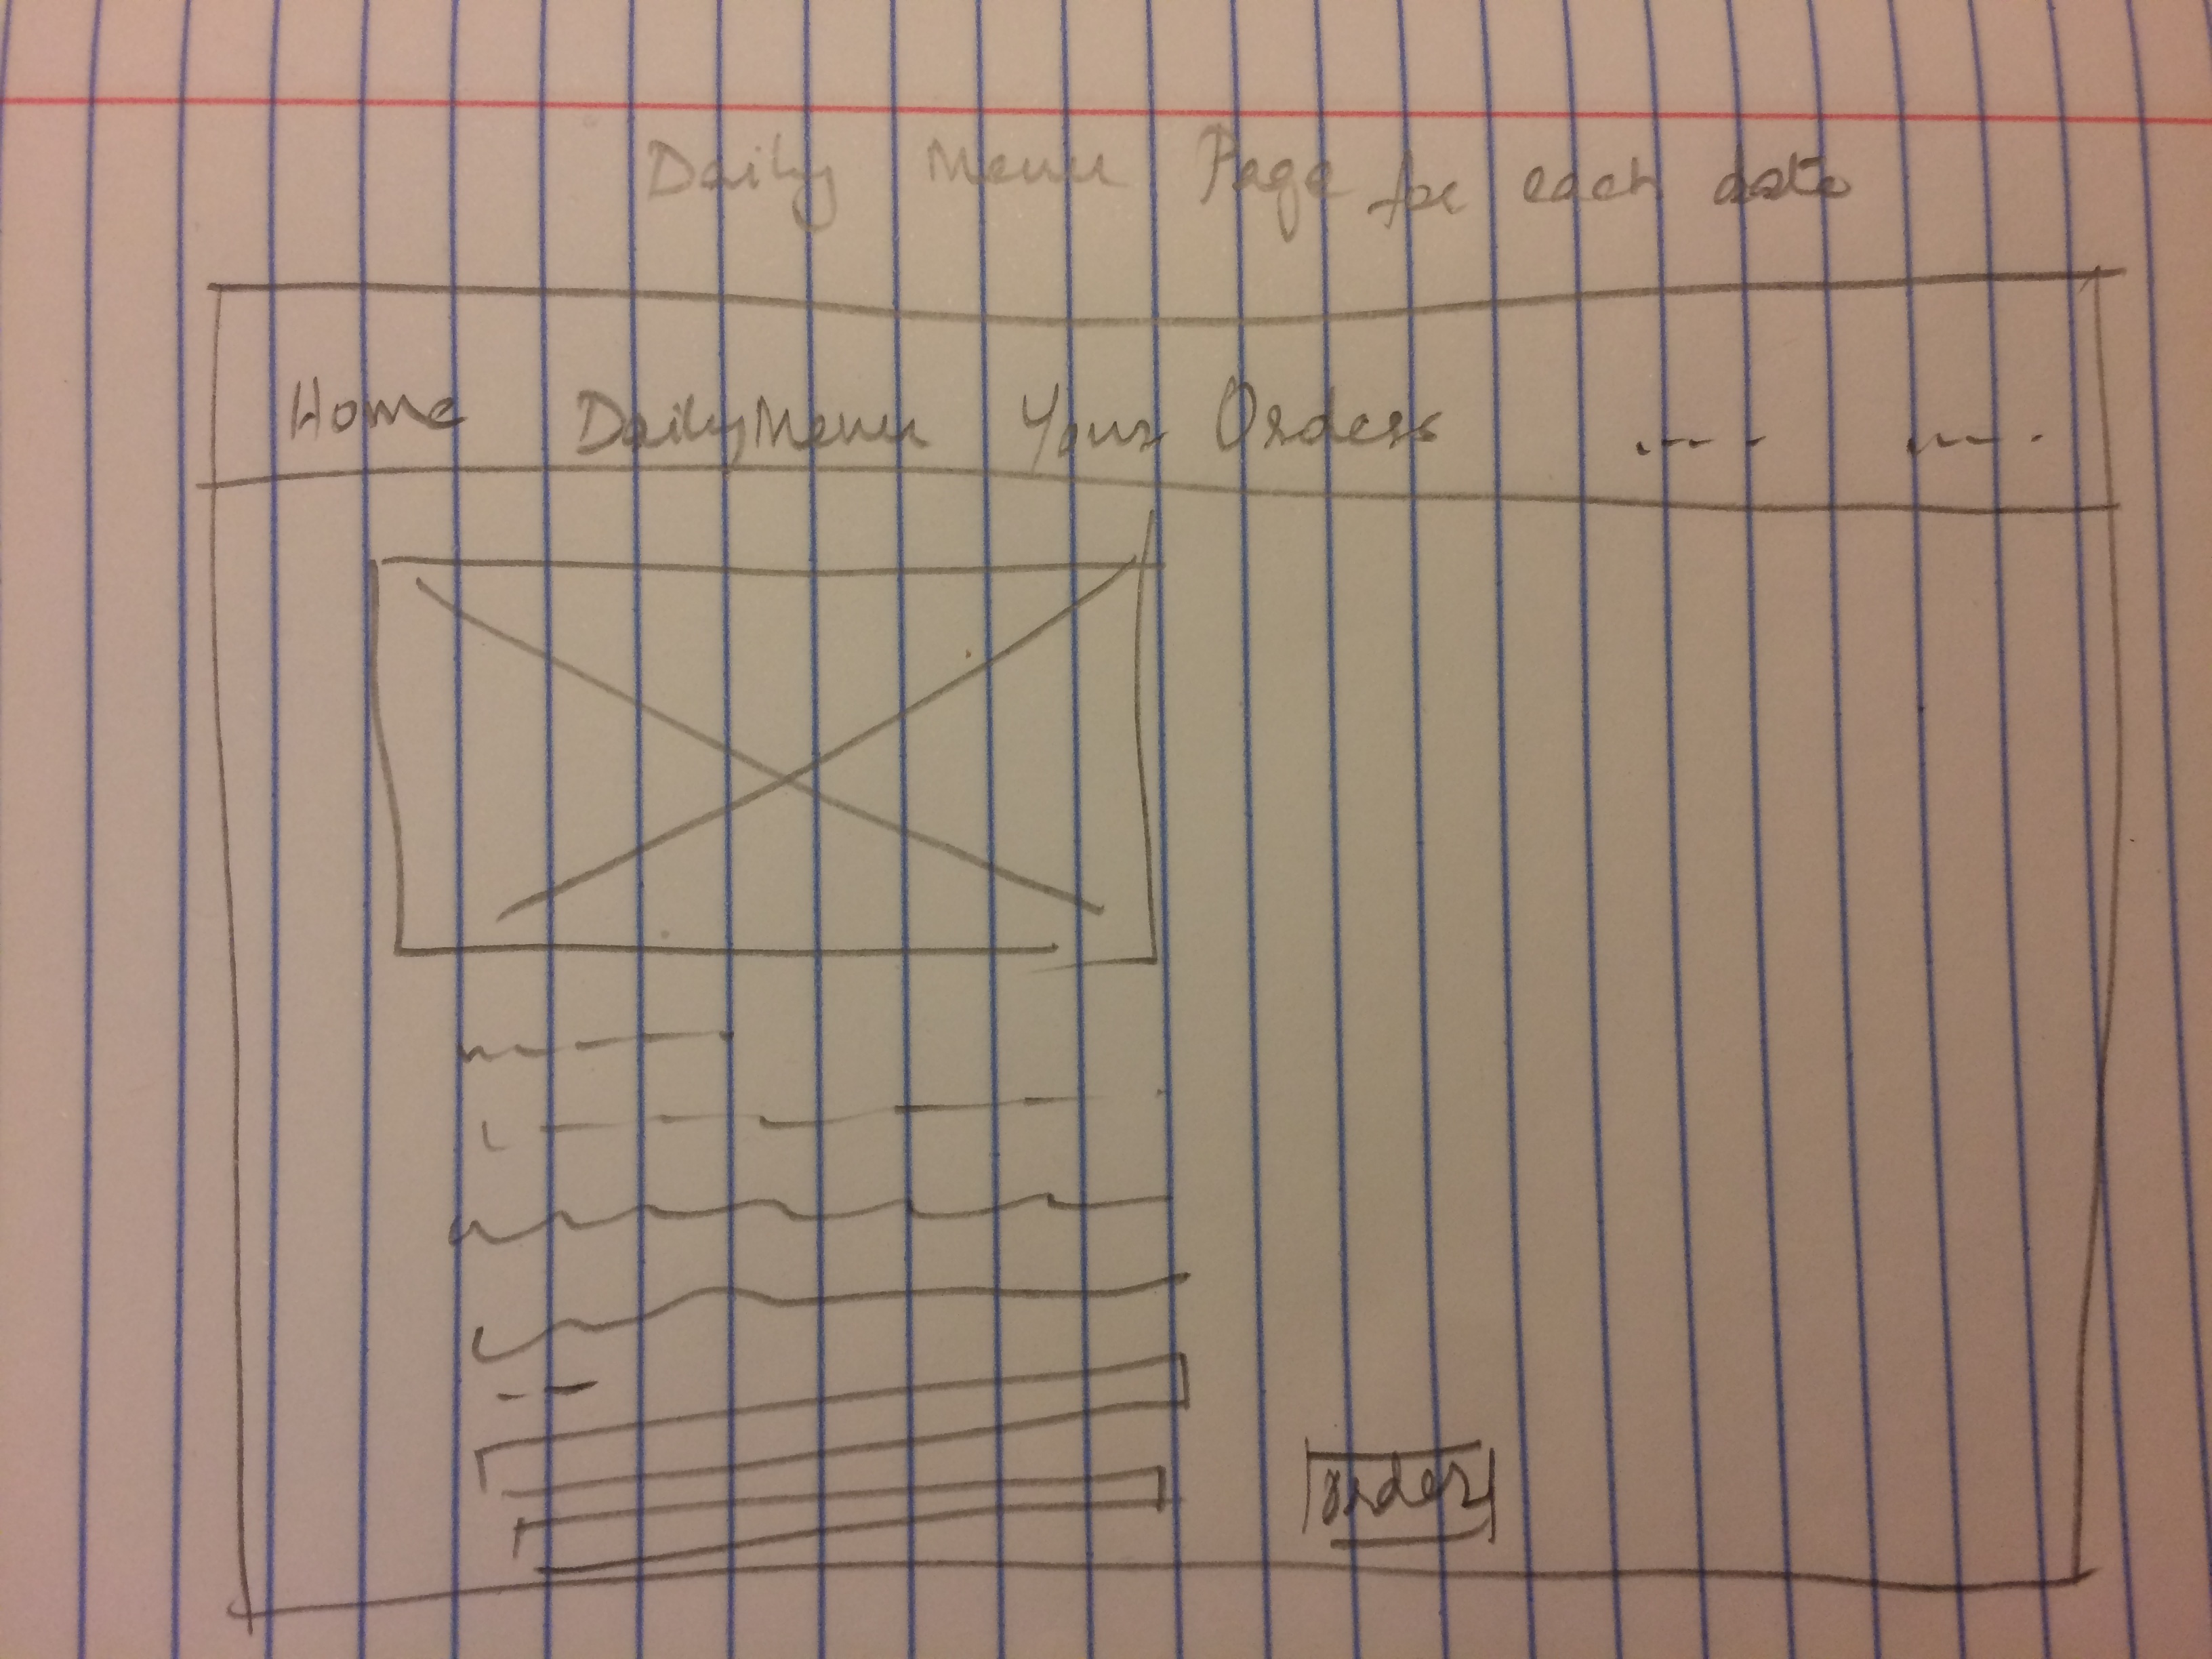 Daily Menu Page for each date
Home Daily Menu Your Orders
order